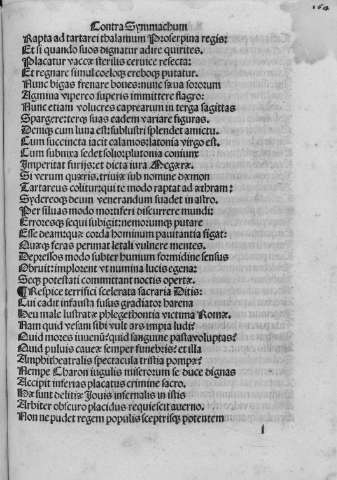 164
Contra Symmachum
Rapta ad tartarei thalamum Proserpina regis:
Et si quando suos dignatur adire quirites.
Placatur vaccæ sterilis ceruice resecta:
Et regnare simul cœloqȝ ereboqȝ putatur.
Nunc bigas frenare boues: nunc sæua sororum
Agmina vipereo superis immittere flagro:
Nunc etiam volucres caprearum in terga sagittas
Spargere: terqȝ suas eadem variare figuras.
Deniqȝ cum luna est: sublustri splendet amictu.
Cum succincta iacit calamos: latonia virgo est.
Cum subnixa sedet solio: plutonia coniunx
Imperitat furijs: et dicta iura Megæræ.
Si verum quæris. triuiæ sub nomine dæmon
Tartareus colitur: qui te modo raptat ad æthram:
Sydereoqȝ deum venerandum suadet in astro.
Per siluas modo mortiferi discurrere mundi:
Erroresqȝ sequi subigit: nemorumqȝ putare
Esse deam: quæ corda hominum pauitantia figat:
Quæqȝ feras perimat letali vulnere mentes.
Depressos modo subter humum formidine sensus
Obruit: implorent vt numina lucis egena:
Seqȝ potestati committant noctis opertæ.
¶ Respice terrifici scelerata sacraria Ditis:
Cui cadit infausta fusus gladiator harena
Heu male lustratæ phlegethontia victima Romæ.
Nam quid vesani sibi vult ars impia ludi?
Quid mortes iuuenū? quid sanguine pasta voluptas?
Quid puluis caueæ semper funebris? et illa
Amphitheatralis spectacula tristia pompæ?
Nempe Charon iugulis miserorum se duce dignas
Accipit inferias placatus crimine sacro.
Hæ sunt delitiæ Iouis infernalis in istis
Arbiter obscuro placidus requiescit auerno.
Non ne pudet regem populis sceptrisqȝ potentem